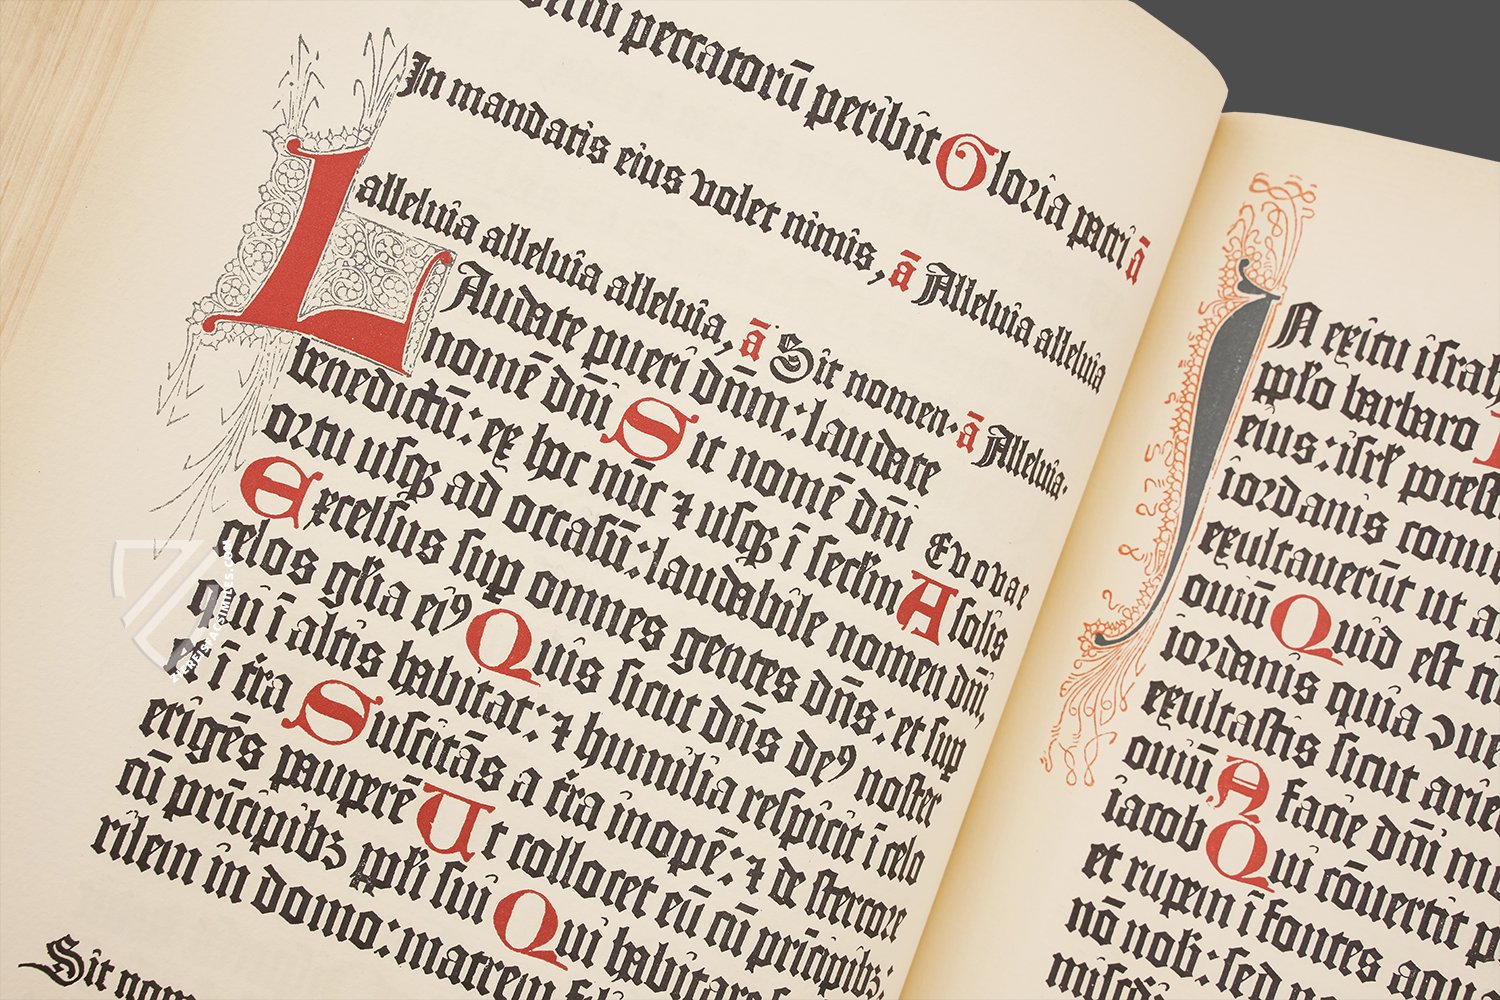 peccatorū peribit Gloria patri ā
In mandatis eius volet nimis, ā Alleluia alleluia
Lalleluia alleluia alleluia, ā Sit nomen· ā Alleluia·
Audate pueri dn̄m: laudate
nomē dn̄i Sit nomē dn̄i Evovae
benedictū: ex hoc nūc ⁊ usqꝫ ī sec̄lm A solis
ortu usqꝫ ad occasū: laudabile nomen dn̄i,
Excelsus sup omnes gentes dn̄s: et sup
celos gl̄ia eiꝰ Quis sicut dn̄s deꝰ noster
qui ī altis habitat: ⁊ humilia respicit ī celo
et ī t̄ra Suscitās a t̄ra inopē: ⁊ de stercore
erigēs pauperē Ut collocet eū cū prīcipibꝫ:
cū prīcipibꝫ ppl̄i sui Qui habitare
rilem in domo: matrem
Sit nom
IN exitu israh
pplo barbaro
eius: isrl̄ potest
iordanis conu
exultauerūt ut a
ouiū Quid est
iordanis quia
exultastis sicut arie
ouiū A facie dn̄i
iacob Qui cōuertit p
et rupem ī fontes aqu
nō nob̄: sed
ZIEREIS FACSIMILES.COM